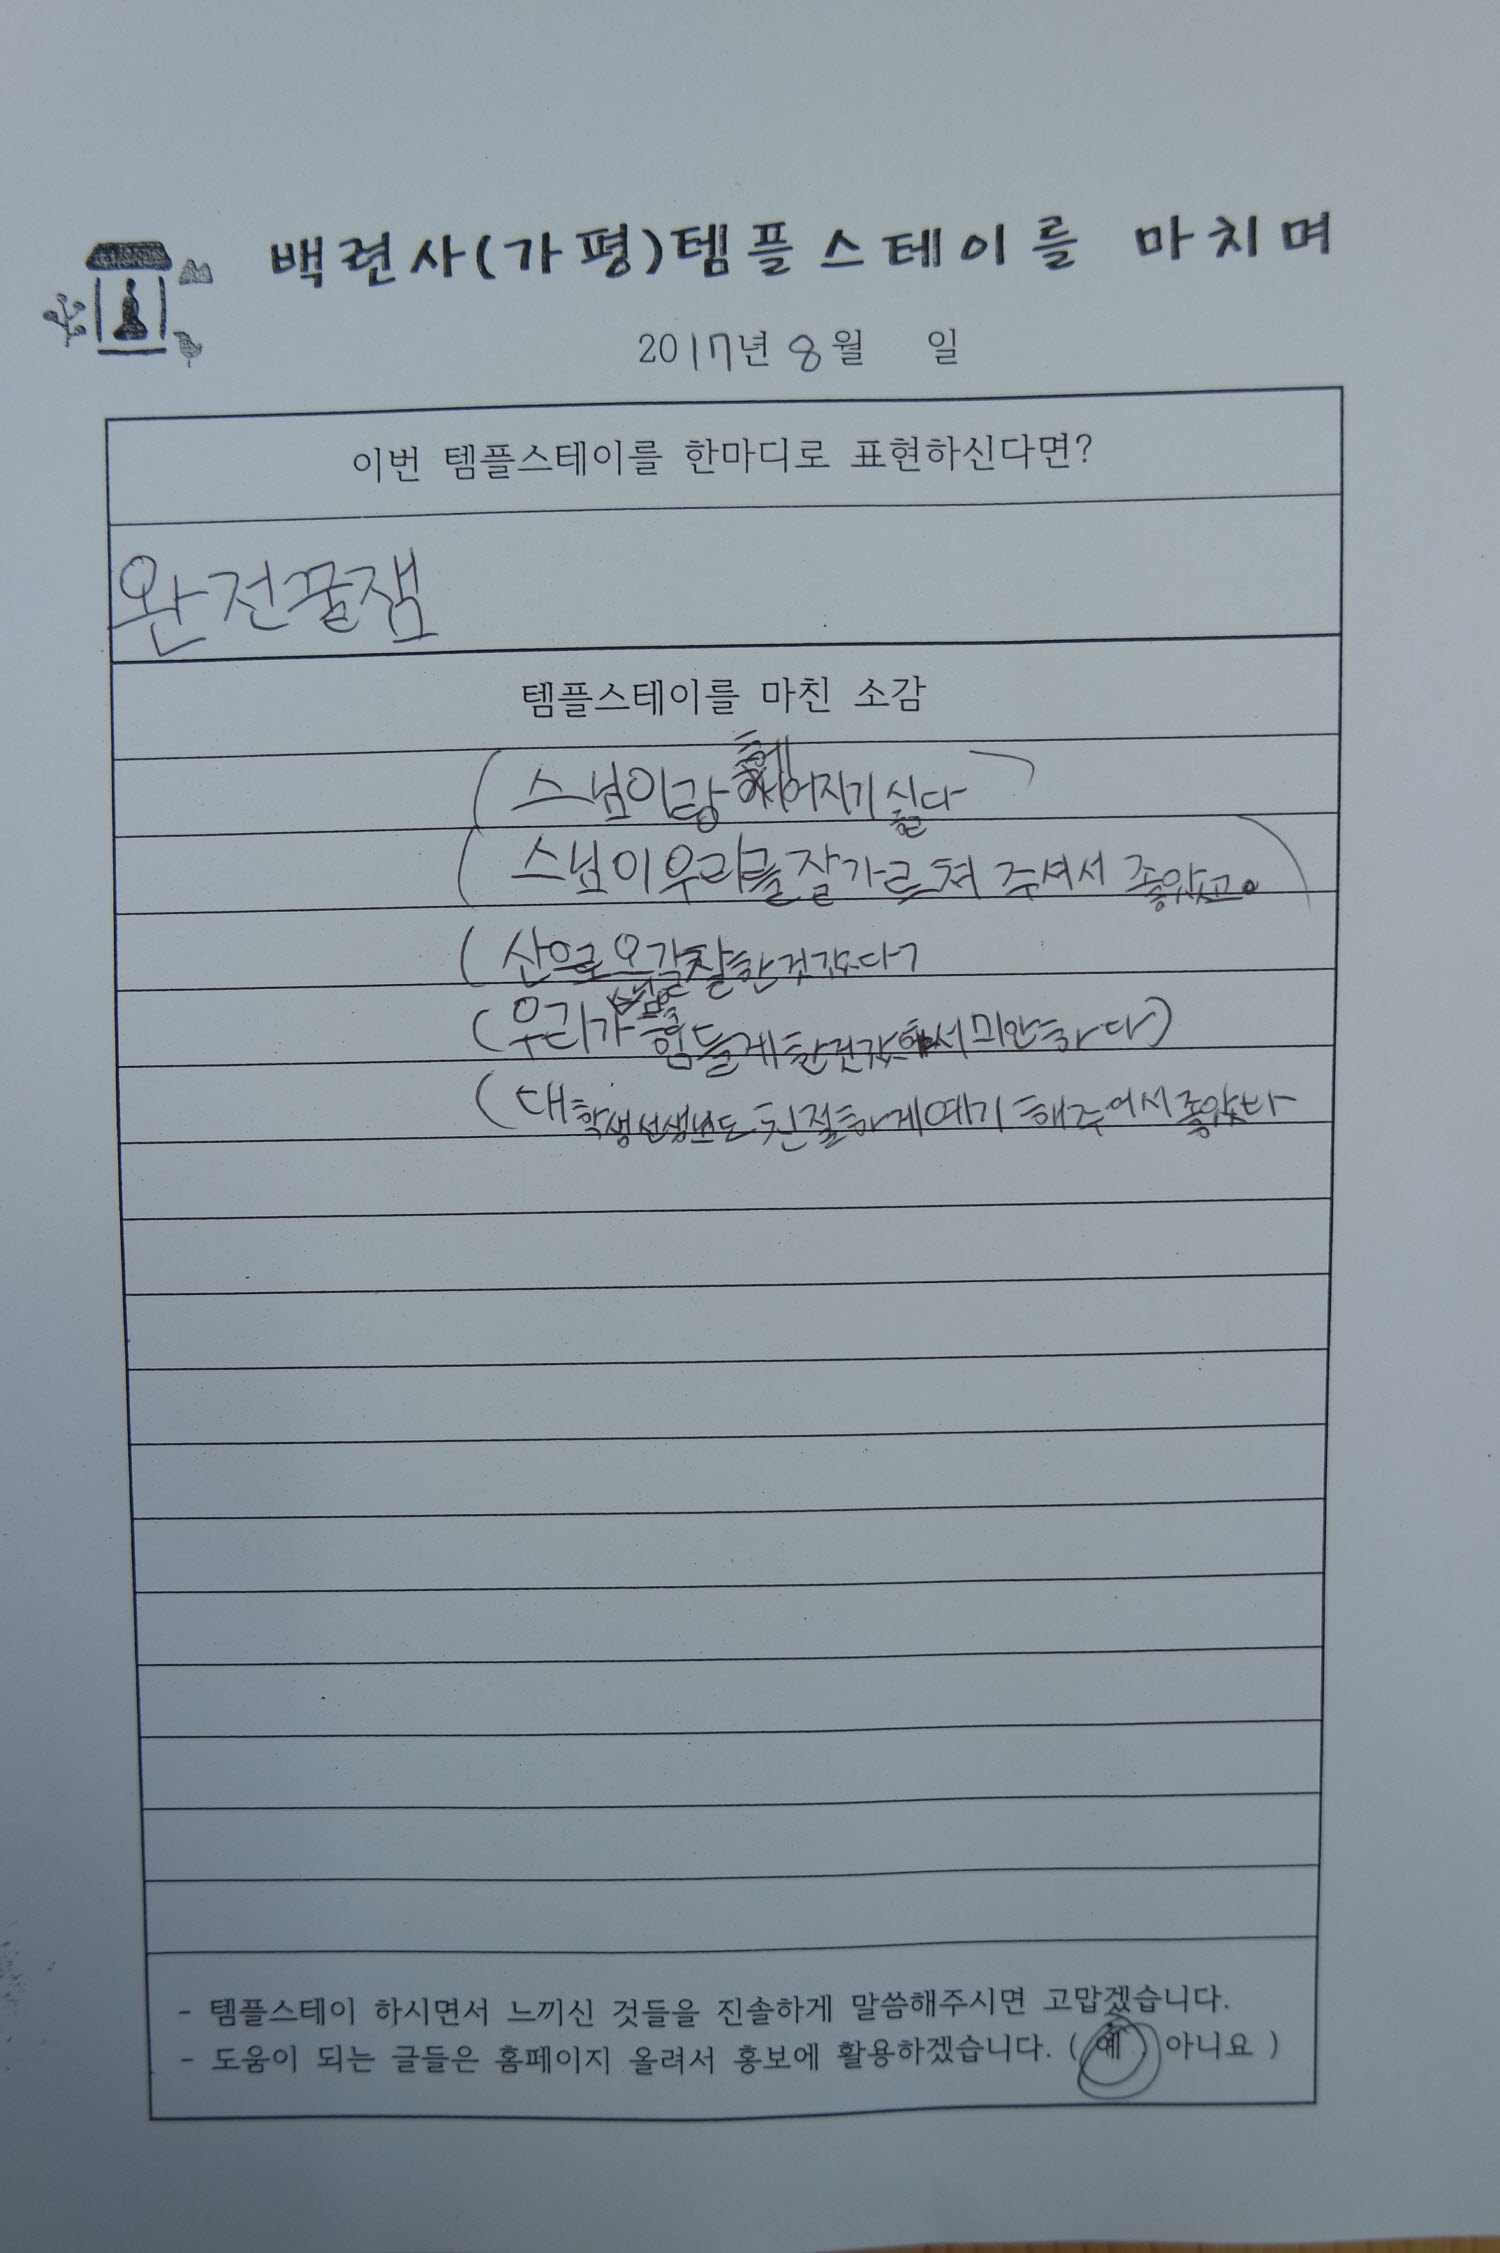 백련사(가평)템플스테이를 마치며
2017년 8월 일
이번 템플스테이를 한마디로 표현하신다면?
완전꿀잼
템플스테이를 마친 소감
(스님이랑 헤어지기 싫다
(스님이 우리를 잘 가르쳐 주셔서 좋았고。)
(산으로 오길 잘한것같다
(우리가 힘들게한것같 서 미안하다)
(대학생선생님도 친절하게 얘기 해주어서 좋았다
- 템플스테이 하시면서 느끼신 것들을 진솔하게 말씀해주시면 고맙겠습니다.
- 도움이 되는 글들은 홈페이지 올려서 홍보에 활용하겠습니다. ( 예 아니요 )